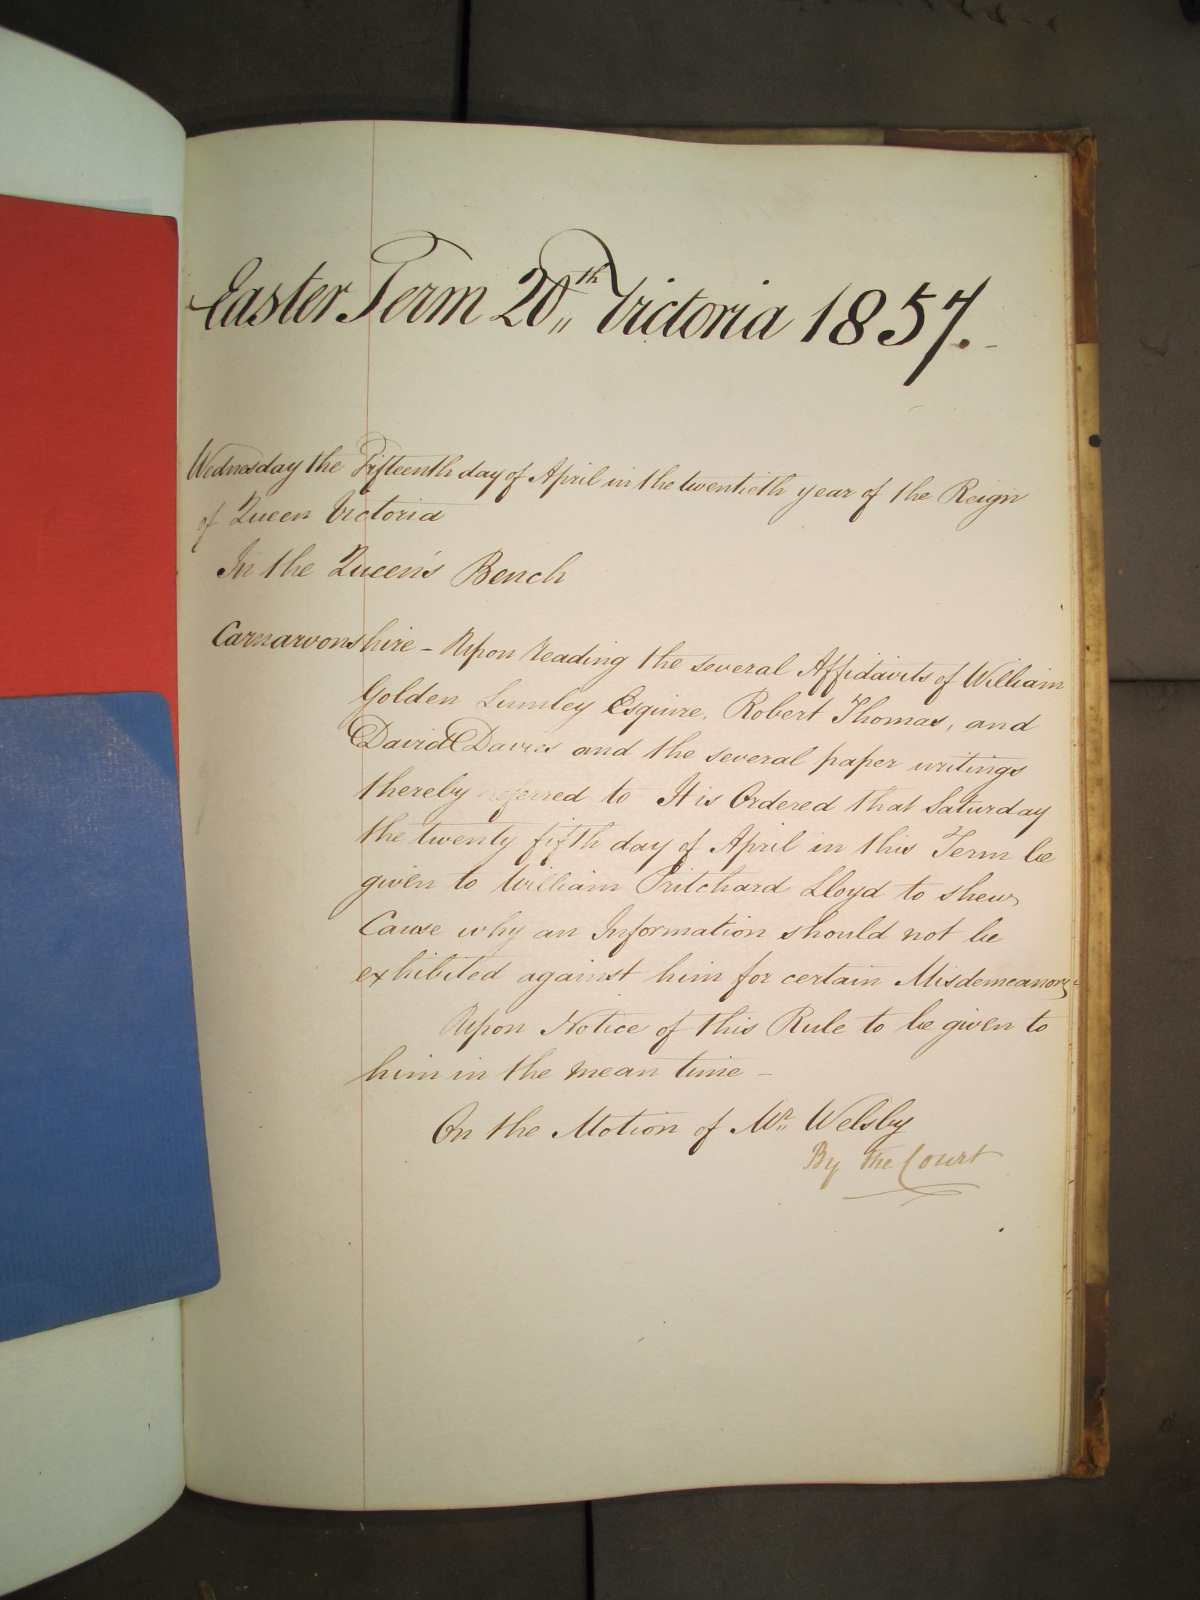 Easter Term 20th Victoria 1857.
Wednesday the Fifteenth day of April in the twentieth year of the Reign
of Queen Victoria
In the Queen's Bench
Carnarvonshire - Upon reading the several Affidavits of William
Golden Lumley Esquire, Robert Thomas, and
David Davies and the several paper writings
thereby referred to It is Ordered that Saturday
the twenty fifth day of April in this Term be
given to William Pritchard Lloyd to shew
Cause why an Information should not be
exhibited against him for certain Misdemeanors
Upon Notice of this Rule to be given to
him in the mean time -
On the Motion of Mr. Welsby
By the Court